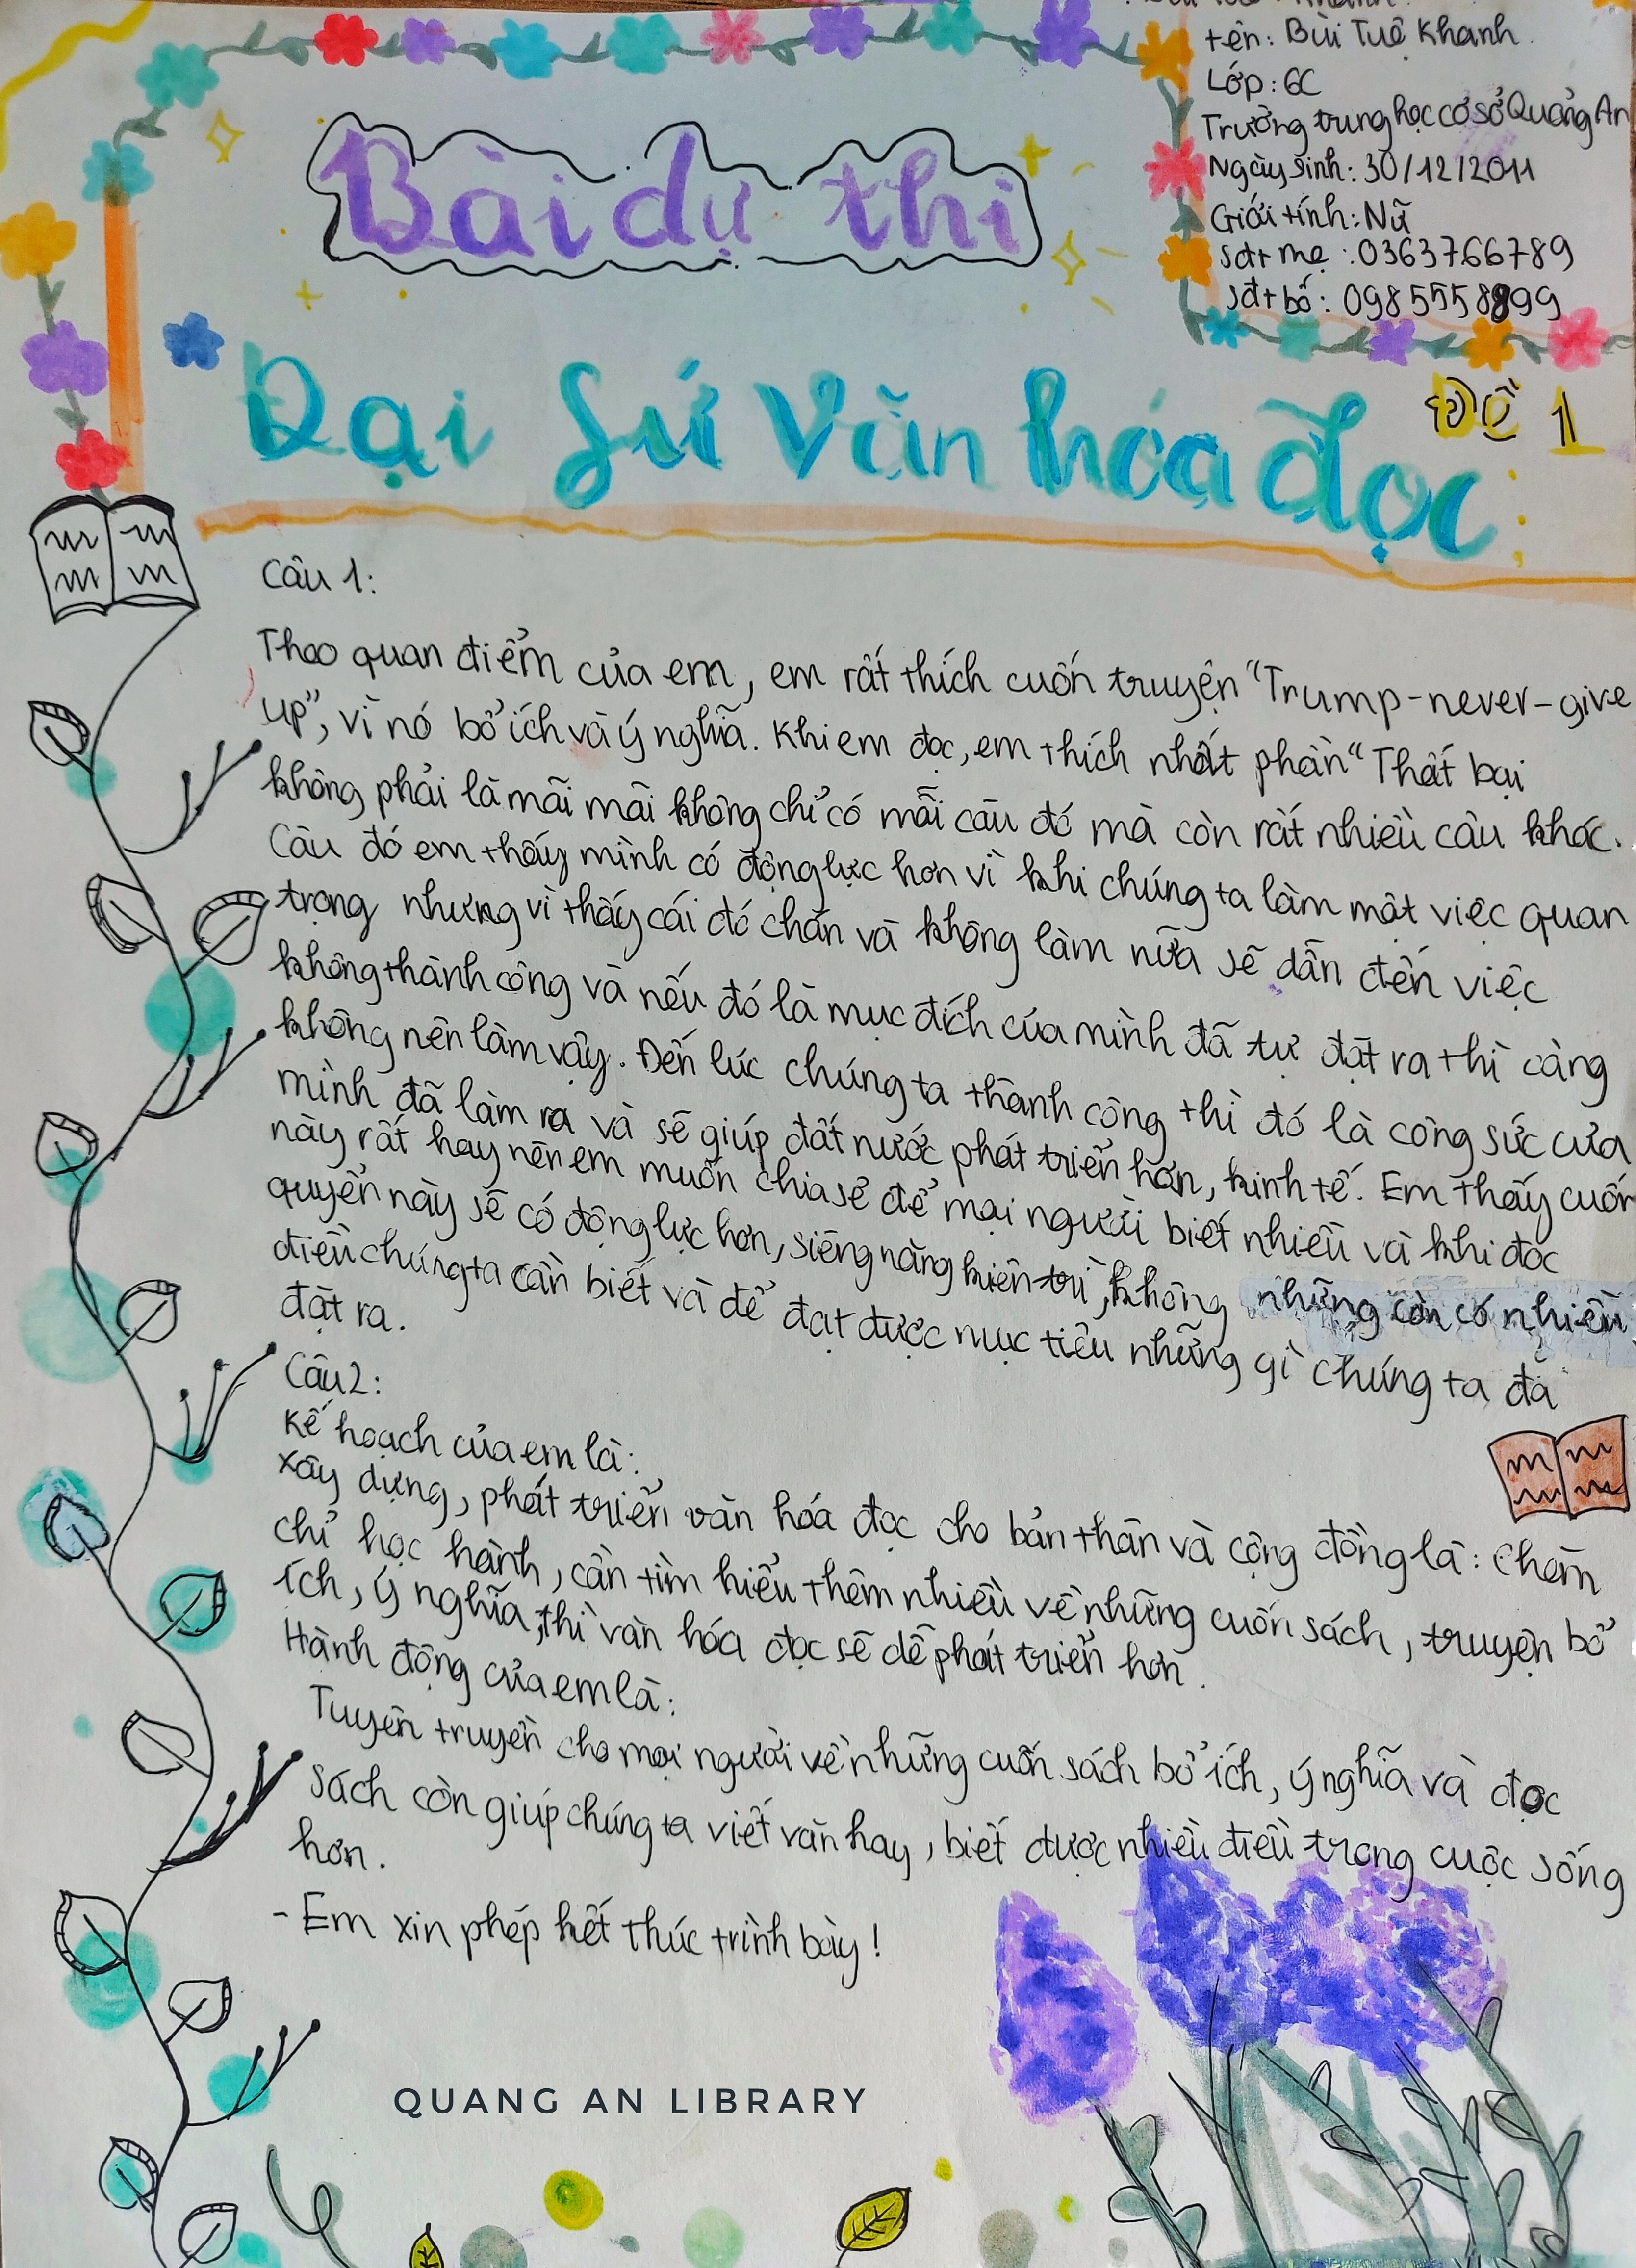 tên: Bùi Tuệ Khanh
Lớp: 6C
Trường trung học cơ sở Quảng An
Ngày sinh: 30/12/2011
Giới tính: Nữ
sđt mẹ : 0363766789
sđt bố : 0985558899
Bài dự thi
Đại Sứ Văn hóa đọc
Đề 1
Câu 1:
Theo quan điểm của em, em rất thích cuốn truyện "Trump-never-give
up", vì nó bổ ích và ý nghĩa. Khi em đọc, em thích nhất phần "Thất bại
không phải là mãi mãi không chỉ có mỗi câu đó mà còn rất nhiều câu khác.
Câu đó em thấy mình có động lực hơn vì khi chúng ta làm một việc quan
trọng nhưng vì thấy cái đó chán và không làm nữa sẽ dẫn đến việc
không thành công và nếu đó là mục đích của mình đã tự đặt ra thì càng
không nên làm vậy. Đến lúc chúng ta thành công thì đó là công sức của
mình đã làm ra và sẽ giúp đất nước phát triển hơn, kinh tế. Em thấy cuốn
này rất hay nên em muốn chia sẻ để mọi người biết nhiều và khi đọc
quyển này sẽ có động lực hơn, siêng năng kiên trì, không những còn có nhiều
điều chúng ta cần biết và để đạt được mục tiêu những gì chúng ta đã
đặt ra.
Câu 2:
Kế hoạch của em là:
Xây dựng, phát triển văn hóa đọc cho bản thân và cộng đồng là: Chăm
chỉ học hành, cần tìm hiểu thêm nhiều về những cuốn sách, truyện bổ
ích, ý nghĩa, thì văn hóa đọc sẽ dễ phát triển hơn.
Hành động của em là:
Tuyên truyền cho mọi người về những cuốn sách bổ ích, ý nghĩa và đọc
sách còn giúp chúng ta viết văn hay, biết được nhiều điều trong cuộc sống
hơn.
- Em xin phép kết thúc trình bày!
QUANG AN LIBRARY